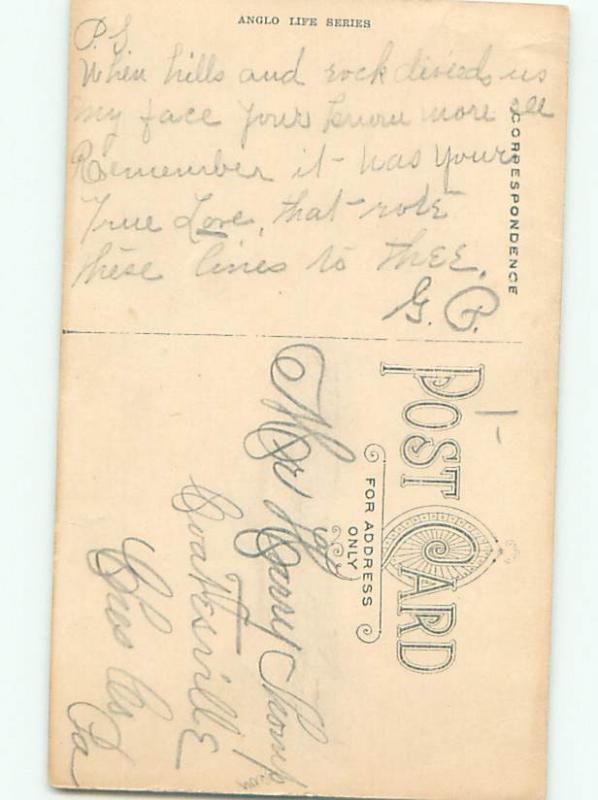 ANGLO LIFE SERIES
P.S
When hills and rock divieds us
my face yours know more see
Remember it was your
True Love, that rote
these lines to thee,
G. P.
CORRESPONDENCE
POST CARD
FOR ADDRESS
ONLY
Mr Harry
Coatesville
Ches Co
Pa